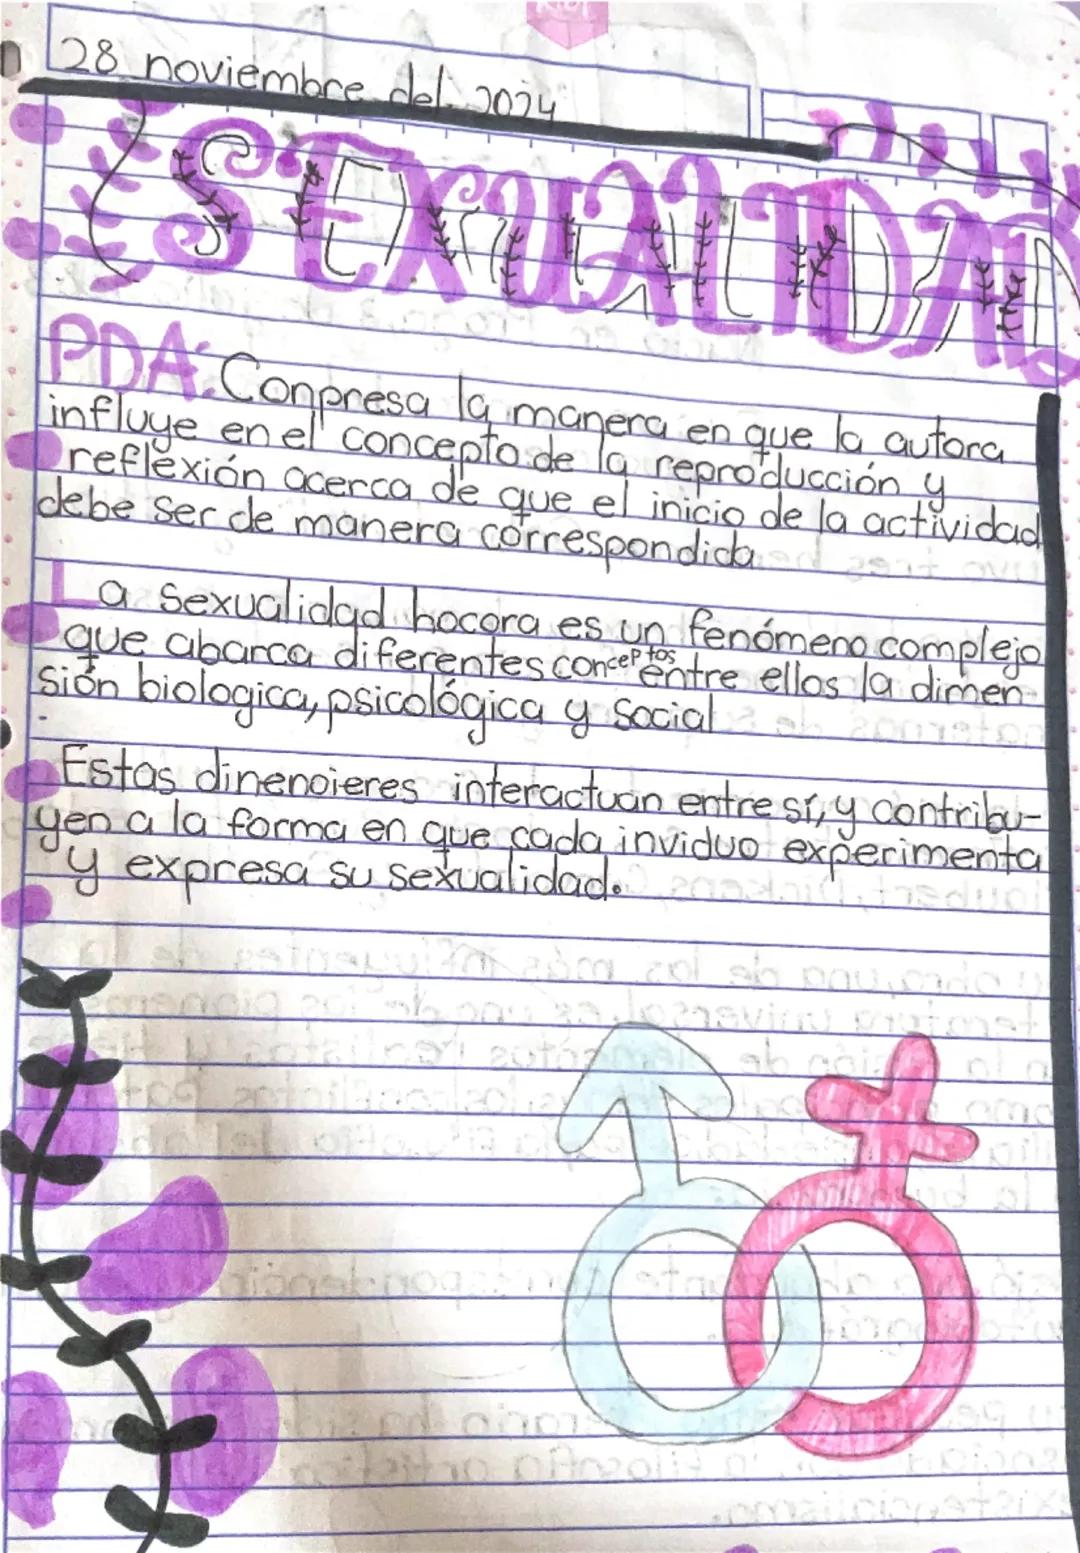 28 noviembre del 2024
SEXUALIDAD
PDA: Conpresa la manera en que la autora
influye en el concepto de la reproducción y
reflexión acerca de que el inicio de la actividad
debe ser de manera correspondida
La sexualidad hocora es un fenómeno complejo
que abarca diferentes conceptos entre ellos la dimen-
sión biologica, psicológica y social
Estas dinenoieres interactuan entre sí, y contribu-
yen a la forma en que cada inviduo experimenta
y expresa su sexualidad.